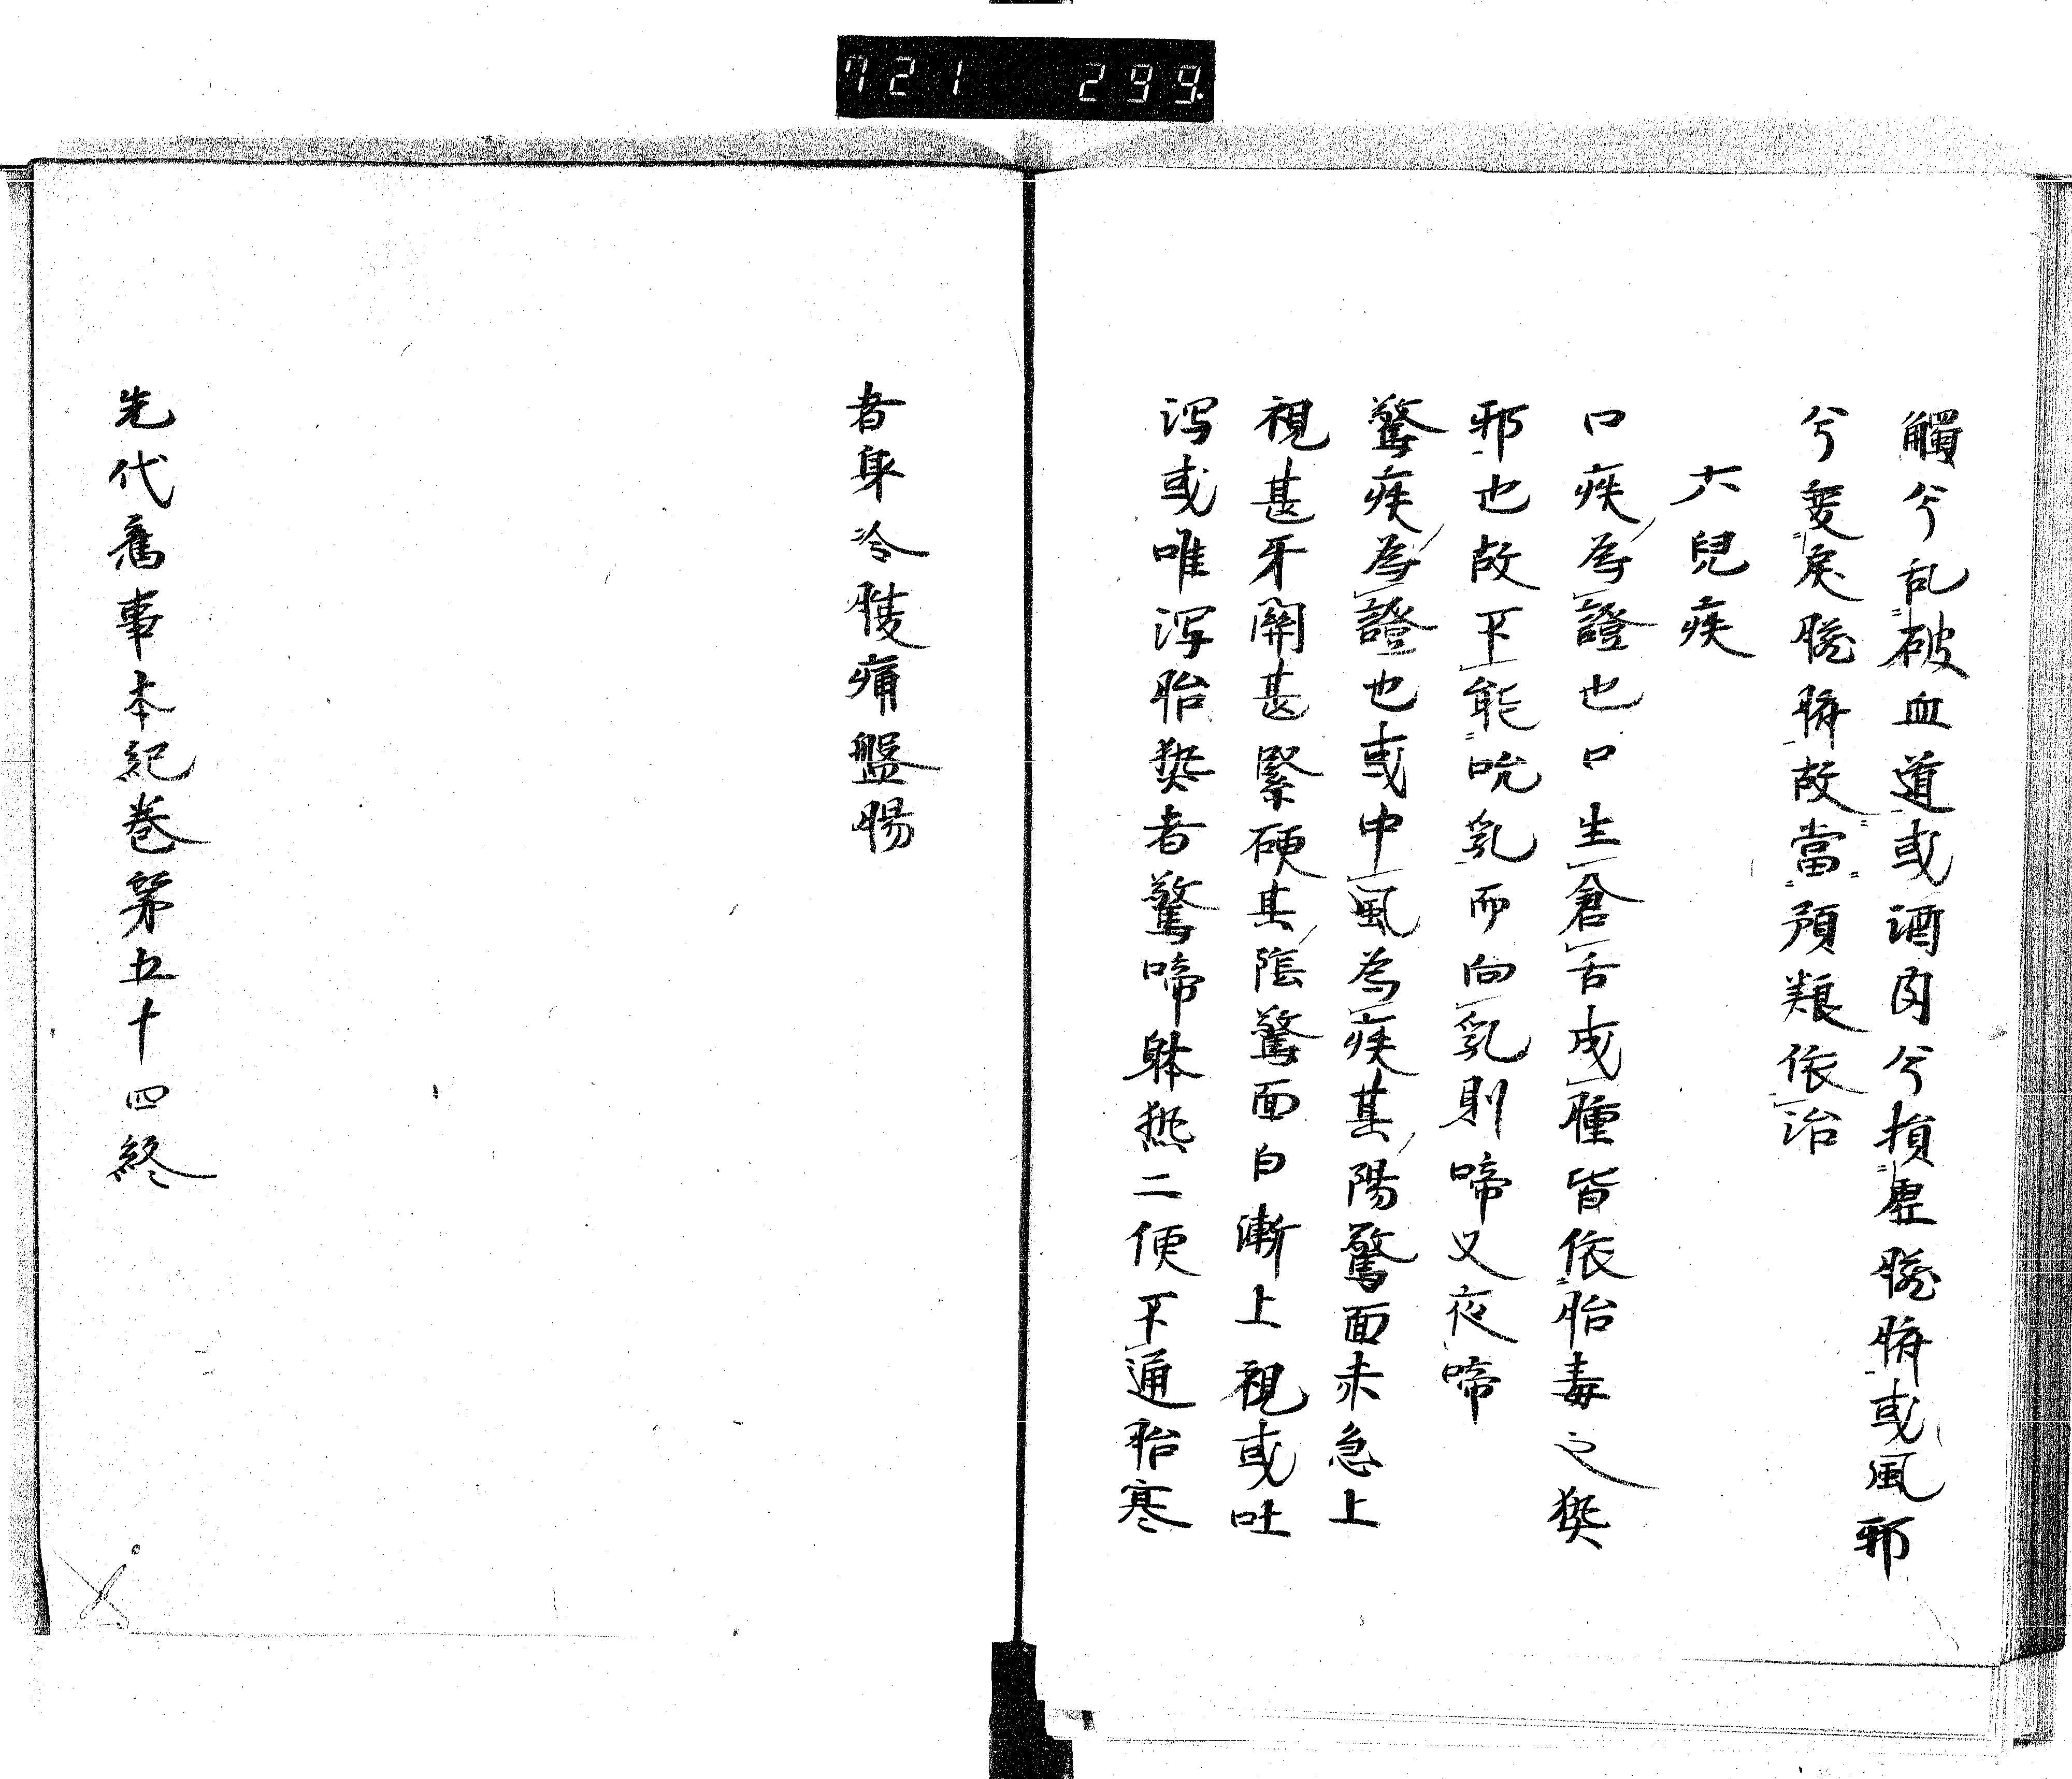 721 299
觸兮乱破血道或酒肉兮損虛膸腑或風邪
兮変戾膸腑故當預類依治
六兒疾
口疾為證也口生倉舌成腫皆依胎毒之㷱
邪也故不能吮乳而向乳則啼又夜啼
驚疾為證也或中風為疾其陽驚面赤急上
視甚牙關甚緊硬其陰驚面白漸上視或吐
泻或唯泻胎㷱者驚啼躰热二便不通胎寒
者身冷腹痛盤腸
先代舊事本紀卷第五十四終